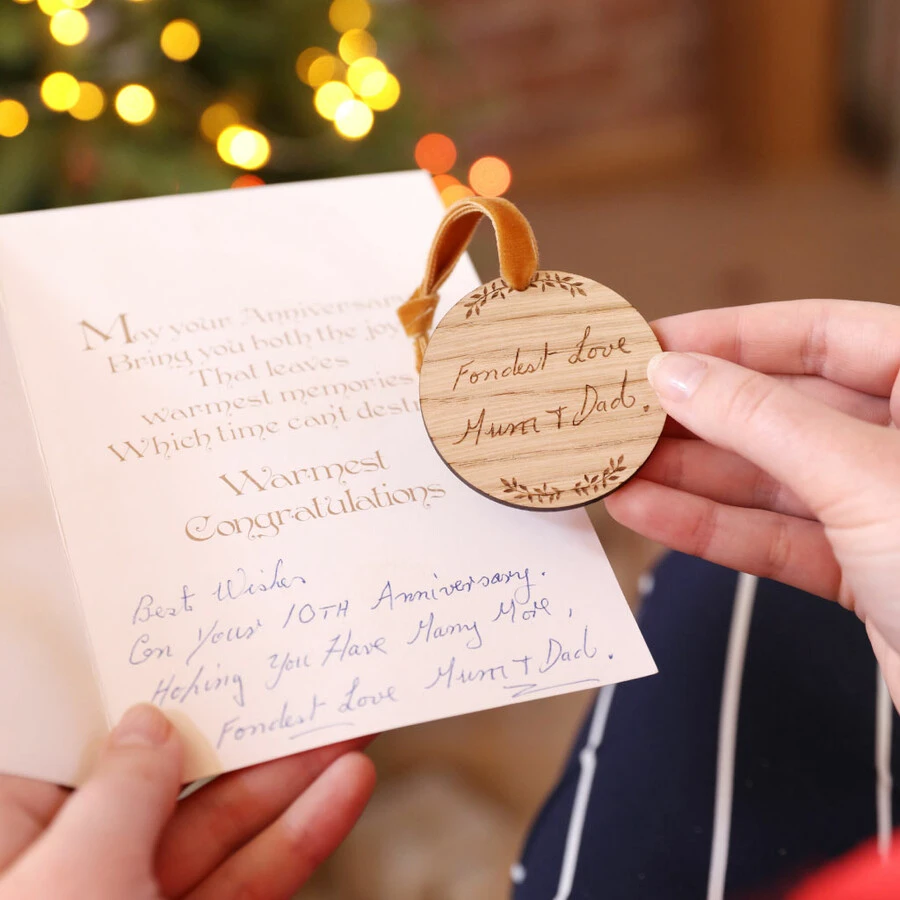 May your Anniversary
Bring you both the joy
That leaves
warmest memories
Which time can't
Warmest
Congratulations
Best Wishes
On Your 10TH Anniversary.
Hoping You Have Many More,
Fondest Love Mum + Dad.
Fondest Love
Mum + Dad.